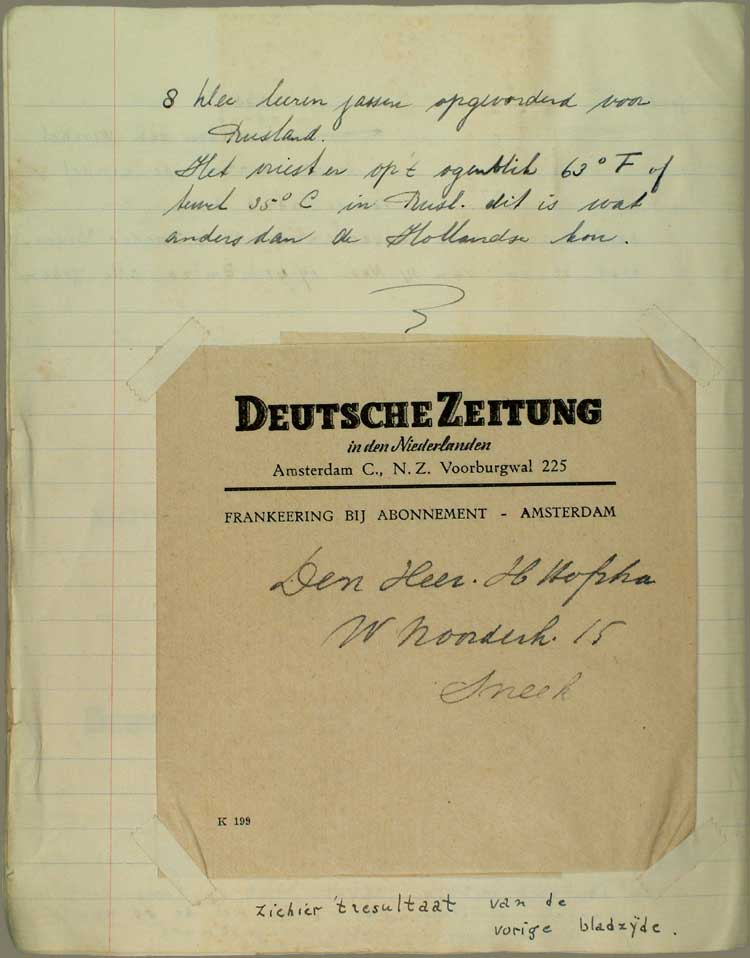 8 klee leeren jassen opgevorderd voor
Rusland.
Het vriest er op't ogenblik 63° F of
tewel 35° C in Rusl. dit is wat
anders dan de Hollandse kou.
DEUTSCHE ZEITUNG
in den Niederlanden
Amsterdam C., N. Z. Voorburgwal 225
FRANKEERING BIJ ABONNEMENT - AMSTERDAM
Den Heer. H
W Noorderh. 15
Sneek
K 199
ziehier 't resultaat van de
vorige bladzijde.